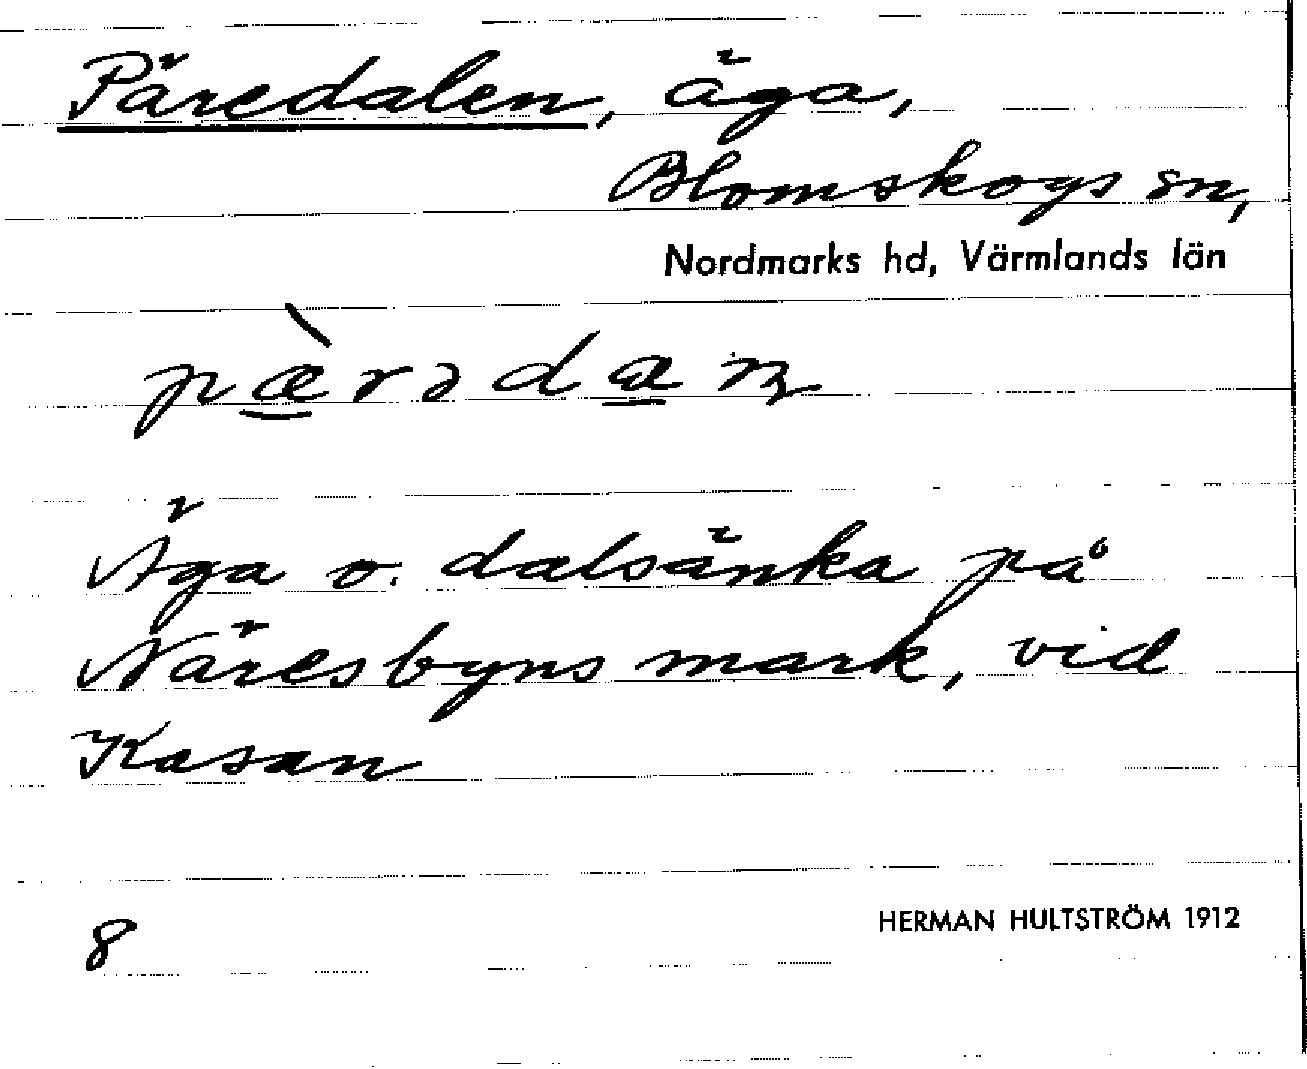 Päredalen, äga,
Blomskogs sn,
Nordmarks hd, Värmlands län
pæ̀rədan
Äga o. dalsänka på
Näresbyns mark, vid
Kasan
8
HERMAN HULTSTRÖM 1912